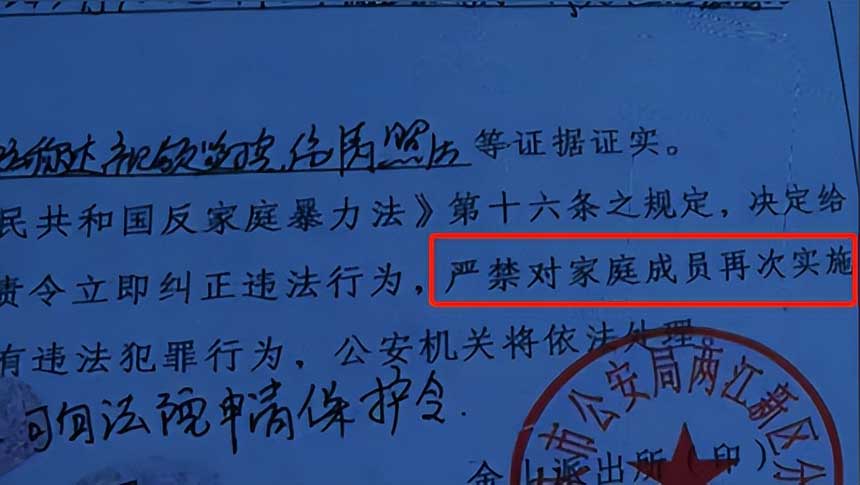 视频监控、伤情照片等证据证实。
民共和国反家庭暴力法》第十六条之规定，决定给
责令立即纠正违法行为，严禁对家庭成员再次实施
有违法犯罪行为，公安机关将依法处理。
可向法院申请保护令.
市公安局两江新区分
金山派出所（印）